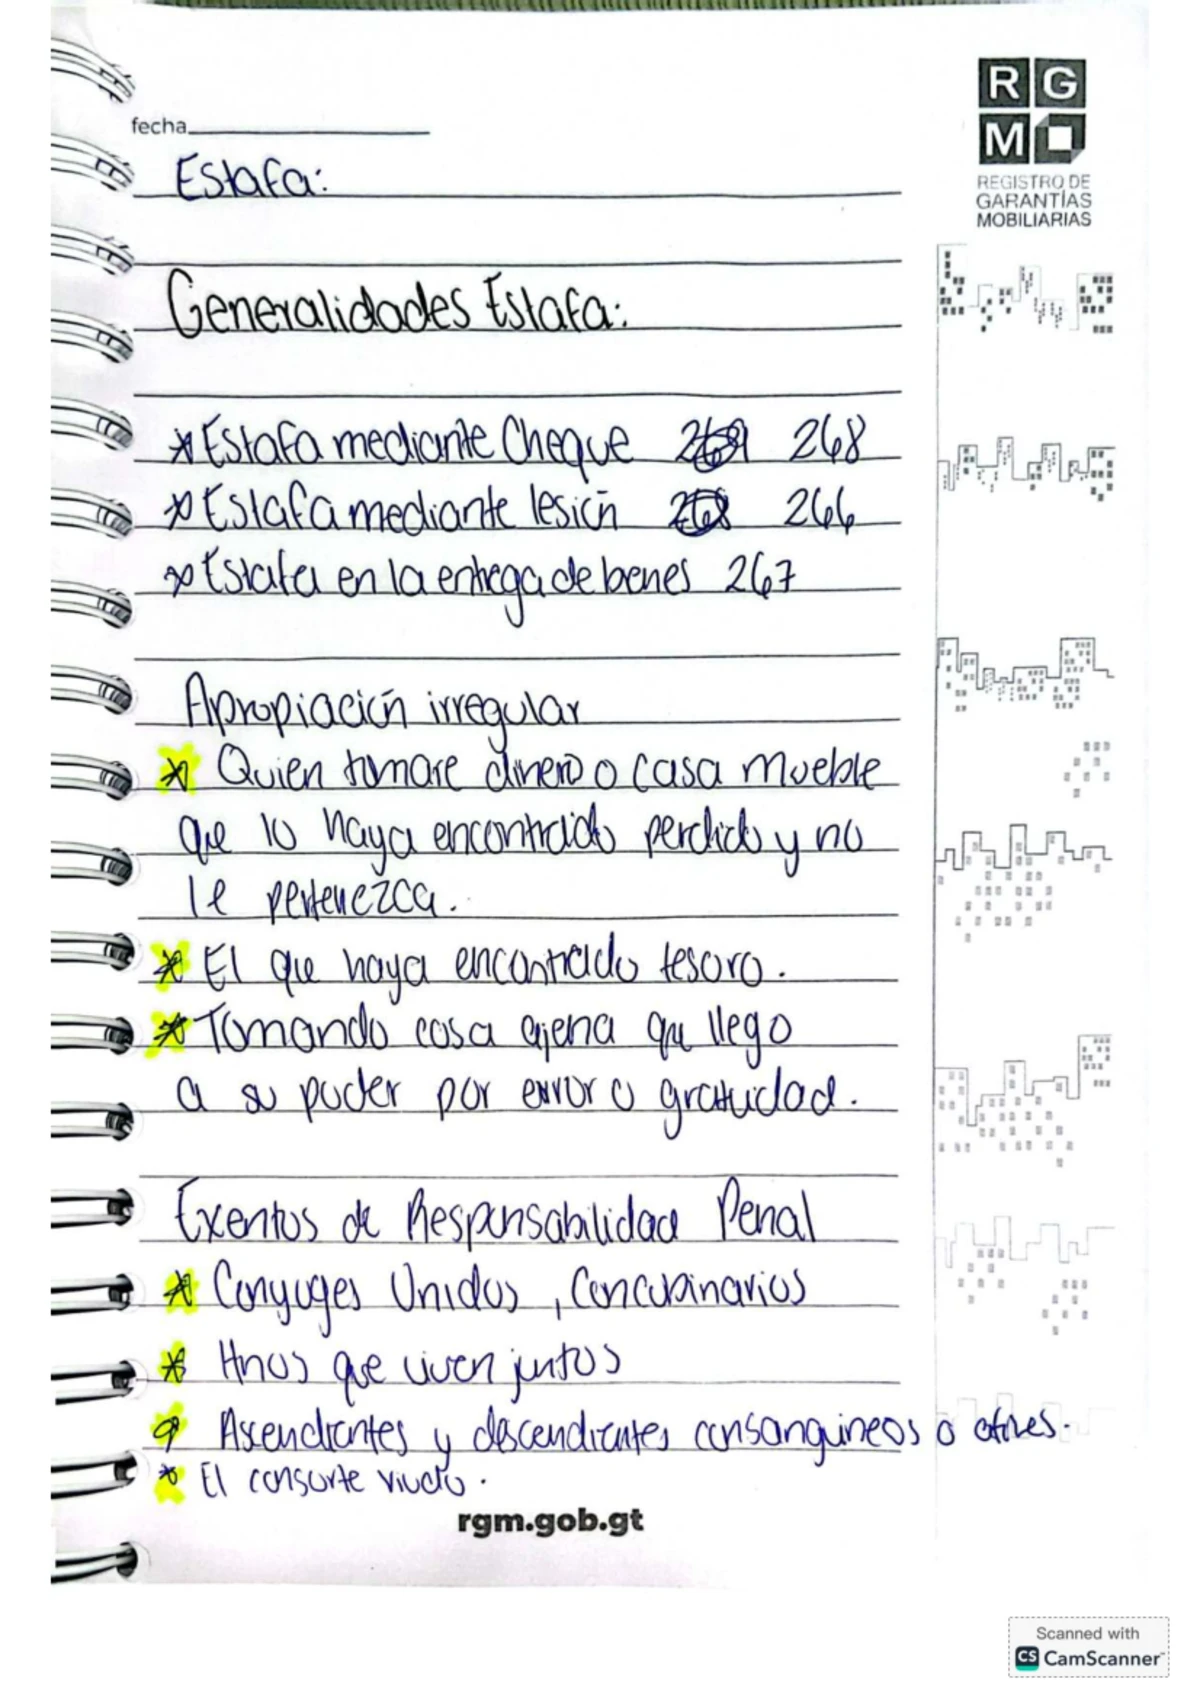 RG
M
REGISTRO DE
GARANTÍAS
MOBILIARIAS
fecha
Estafa:
Generalidades Estafa:
* Estafa mediante Cheque 268
* Estafa mediante lesión 266
* Estafa en la entrega de bienes 267
Apropiación irregular
* Quien tomare dinero o casa mueble
que lo haya encontrado perdido y no
le pertenezca.
* El que haya encontrado tesoro.
* Tomando cosa ajena que llego
a su poder por error o gratuidad.
Exentos de Responsabilidad Penal
* Conyuges Unidos, Concubinarios
* Hnos que viven juntos
* Ascendientes y descendientes consanguineos o afines.
* El consorte viudo.
rgm.gob.gt
Scanned with
CS CamScanner